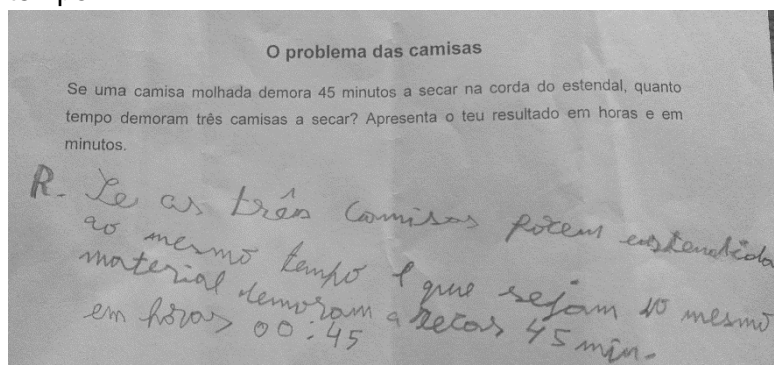 O problema das camisas
Se uma camisa molhada demora 45 minutos a secar na corda do estendal, quanto
tempo demoram três camisas a secar? Apresenta o teu resultado em horas e em
minutos.
R. Se as três camisas forem estendida
ao mesmo tempo e que sejam do mesmo
material demoram a secar 45 min.
em horas 00:45